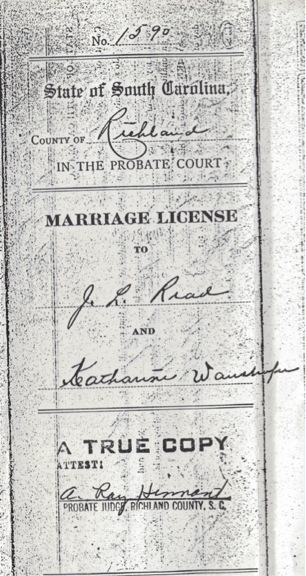 No. 1590
State of South Carolina,
COUNTY OF Richland
IN THE PROBATE COURT
MARRIAGE LICENSE
TO
J. L. Read
AND
Katharine
A TRUE COPY
ATTEST:
A. Ray Hinnant
PROBATE JUDGE, RICHLAND COUNTY, S. C.